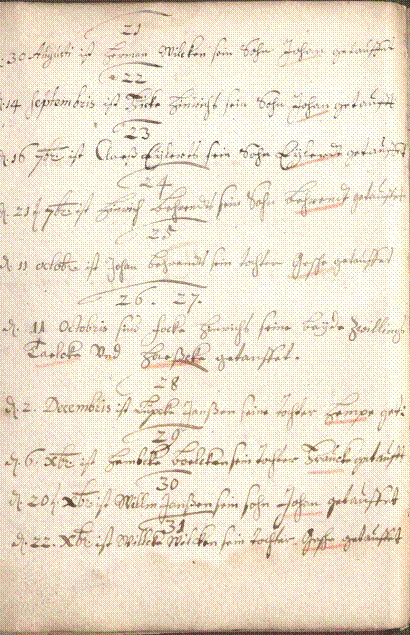 21
d. 30 Augusti ist Herman Wilcken sein Sohn Johan getauffet
22
d. 14 Septembris ist Focke Hinrichs sein Sohn Johan getaufft
23
d. 16 7br ist Eylerts sein Sohn Eylerdt getaufft
24
d. 21 7br ist Hinrich Behrendts sein Sohn Behrendt getauffet
25
d. 11 octobr ist Johan Behrendts sein tochter Gesche getauffet
26. 27.
d. 11 Octobris sind Focke Hinrichs seine beyde Zwillinge
Taelcke Und getauffet.
28
d. 2. Decembris ist Janßen seine tochter
29
d. 6. Xbr ist sein tochter getaufft
30
d. 20 Xbr ist Willm Janßen sein sohn Johan getauffet
31
d. 22. Xbr ist Willcke Wilcken sein tochter Gesche getauffet